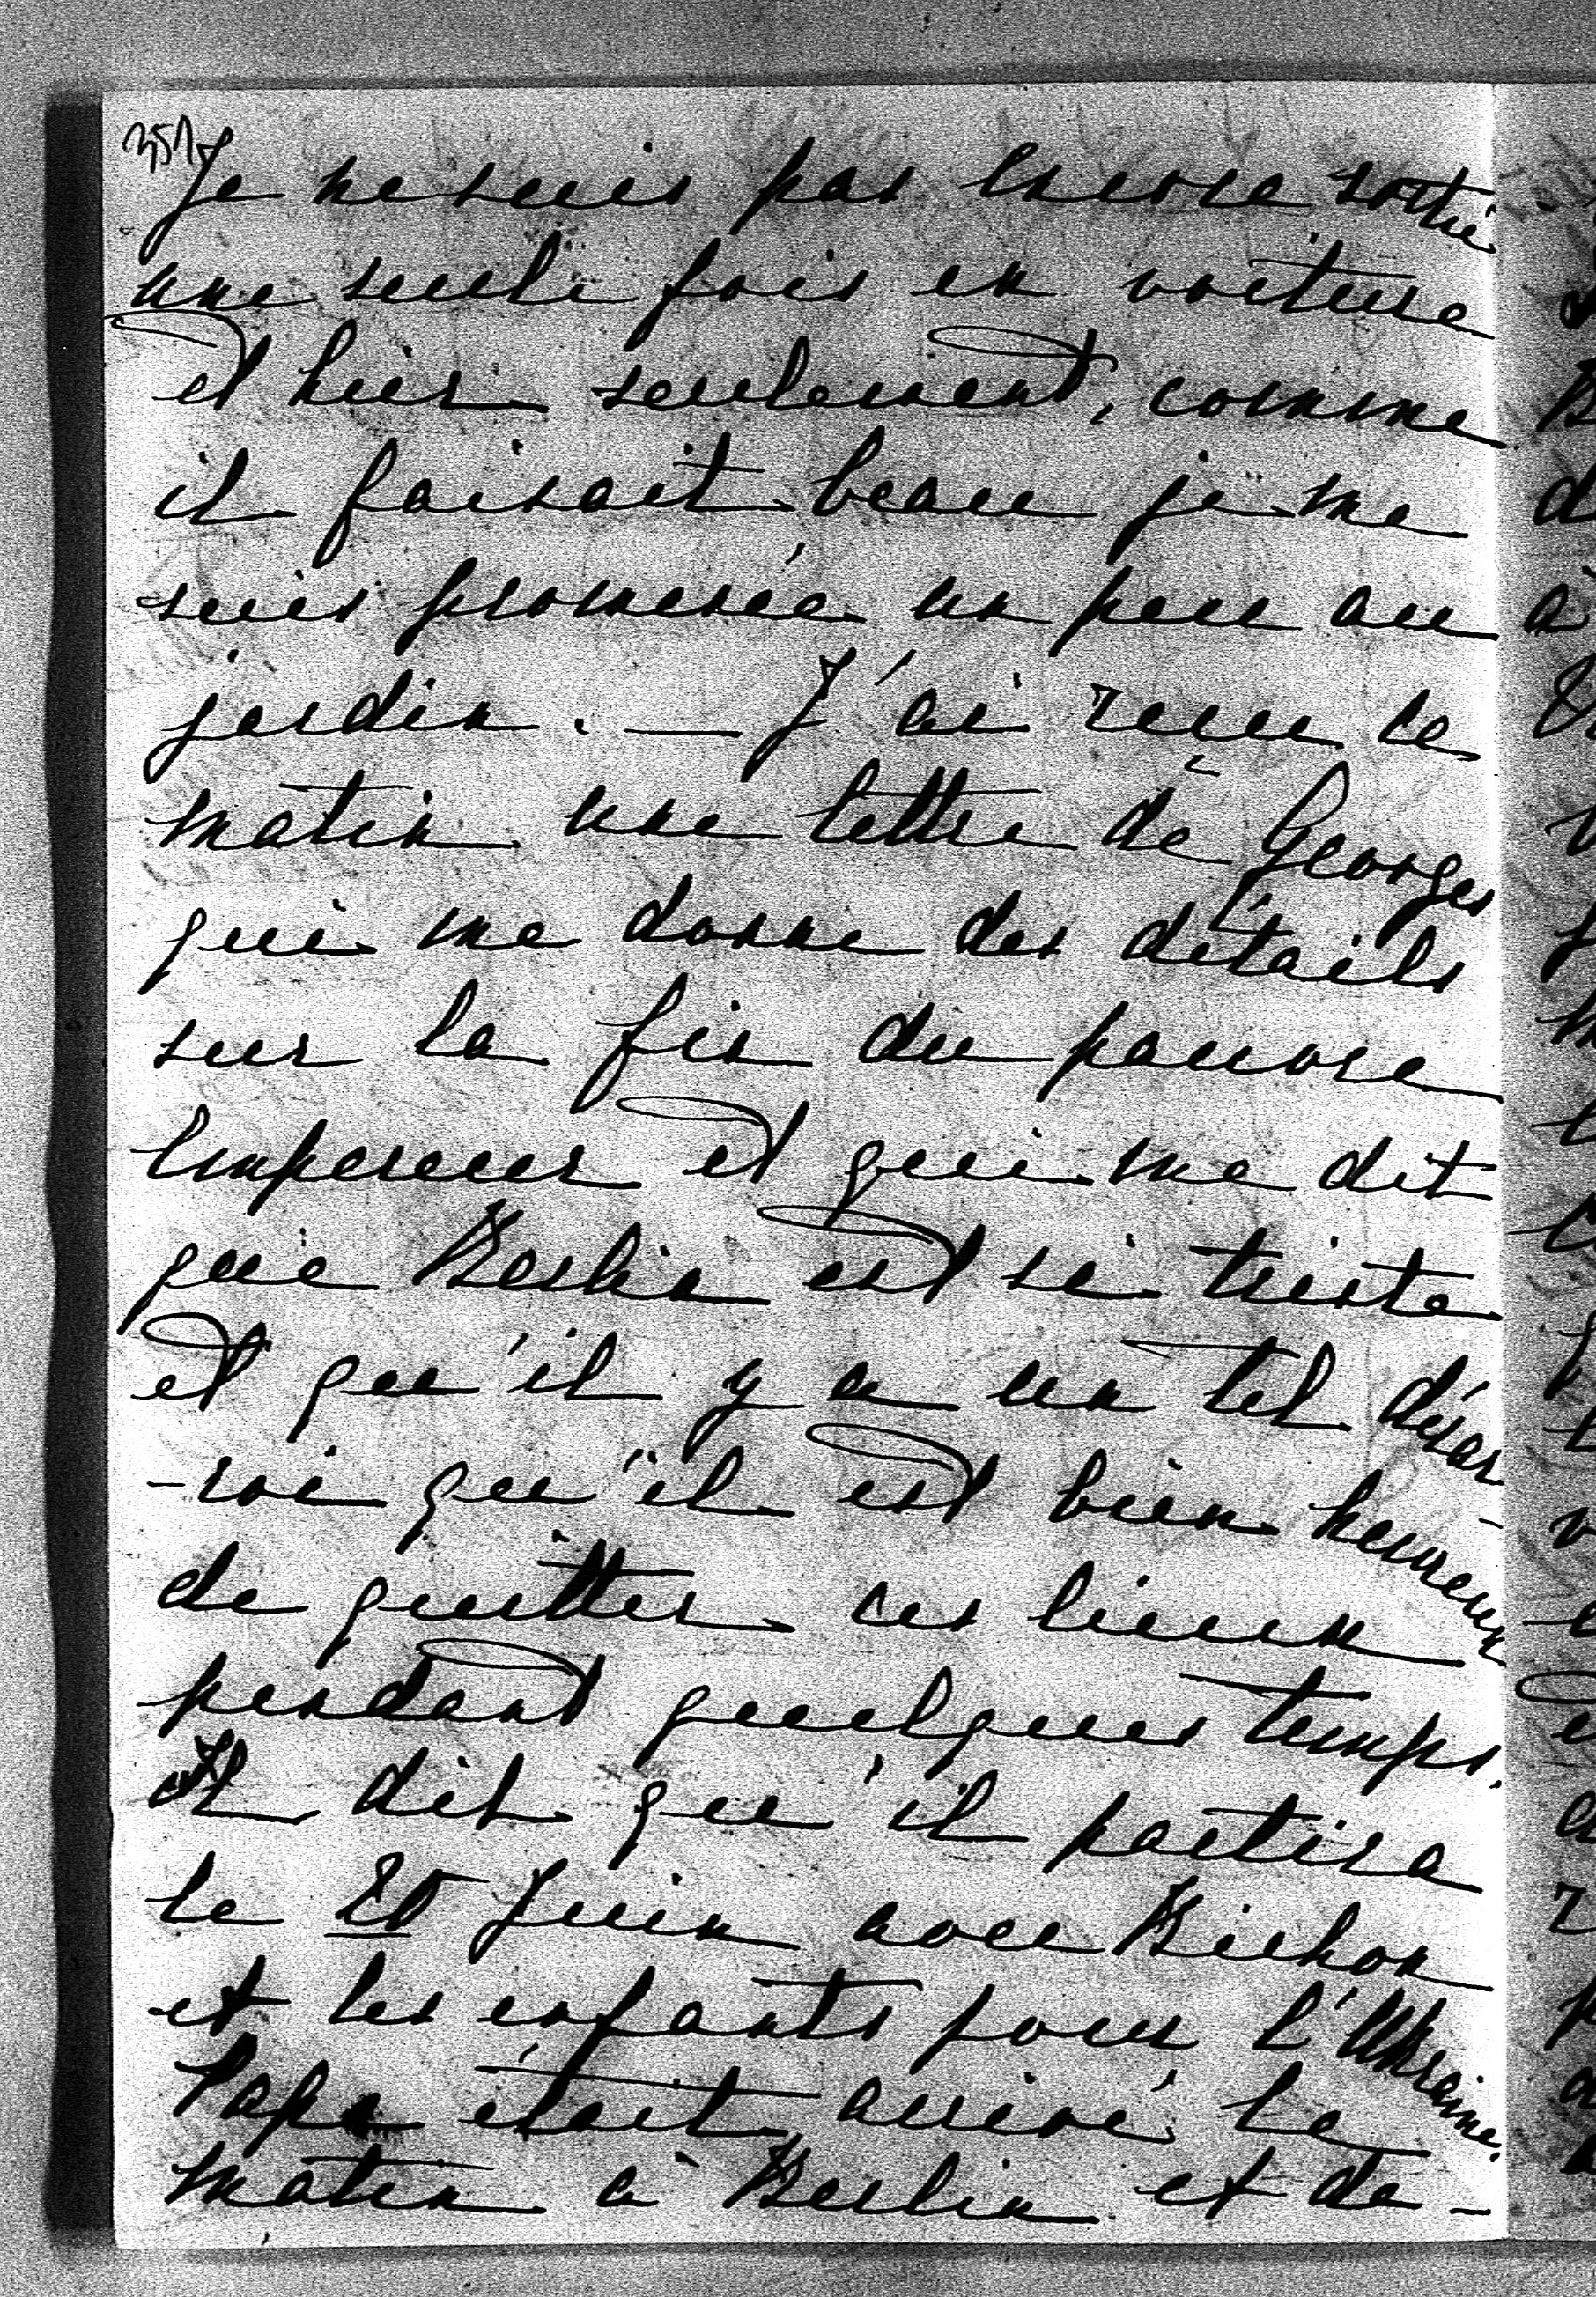 357
Je ne suis pas encore sortie
une seule fois en voiture
et hier seulement, comme
il faisait beau je me
suis promenée un peu au
jardin. — J'ai reçu ce
matin une lettre de Georges
qui me donne des détails
sur la fin du pauvre
Empereur et qui me dit
que Berlin est si triste
et qu'il y a un tel désar-
-roi qu'il est bien heureux
de quitter ces lieux
pendant quelques temps.
Il dit qu'il partira
le 20 Juin avec Bichon
et les enfants pour l'Ukraine.
Papa était arrivé le
matin à Berlin et de-